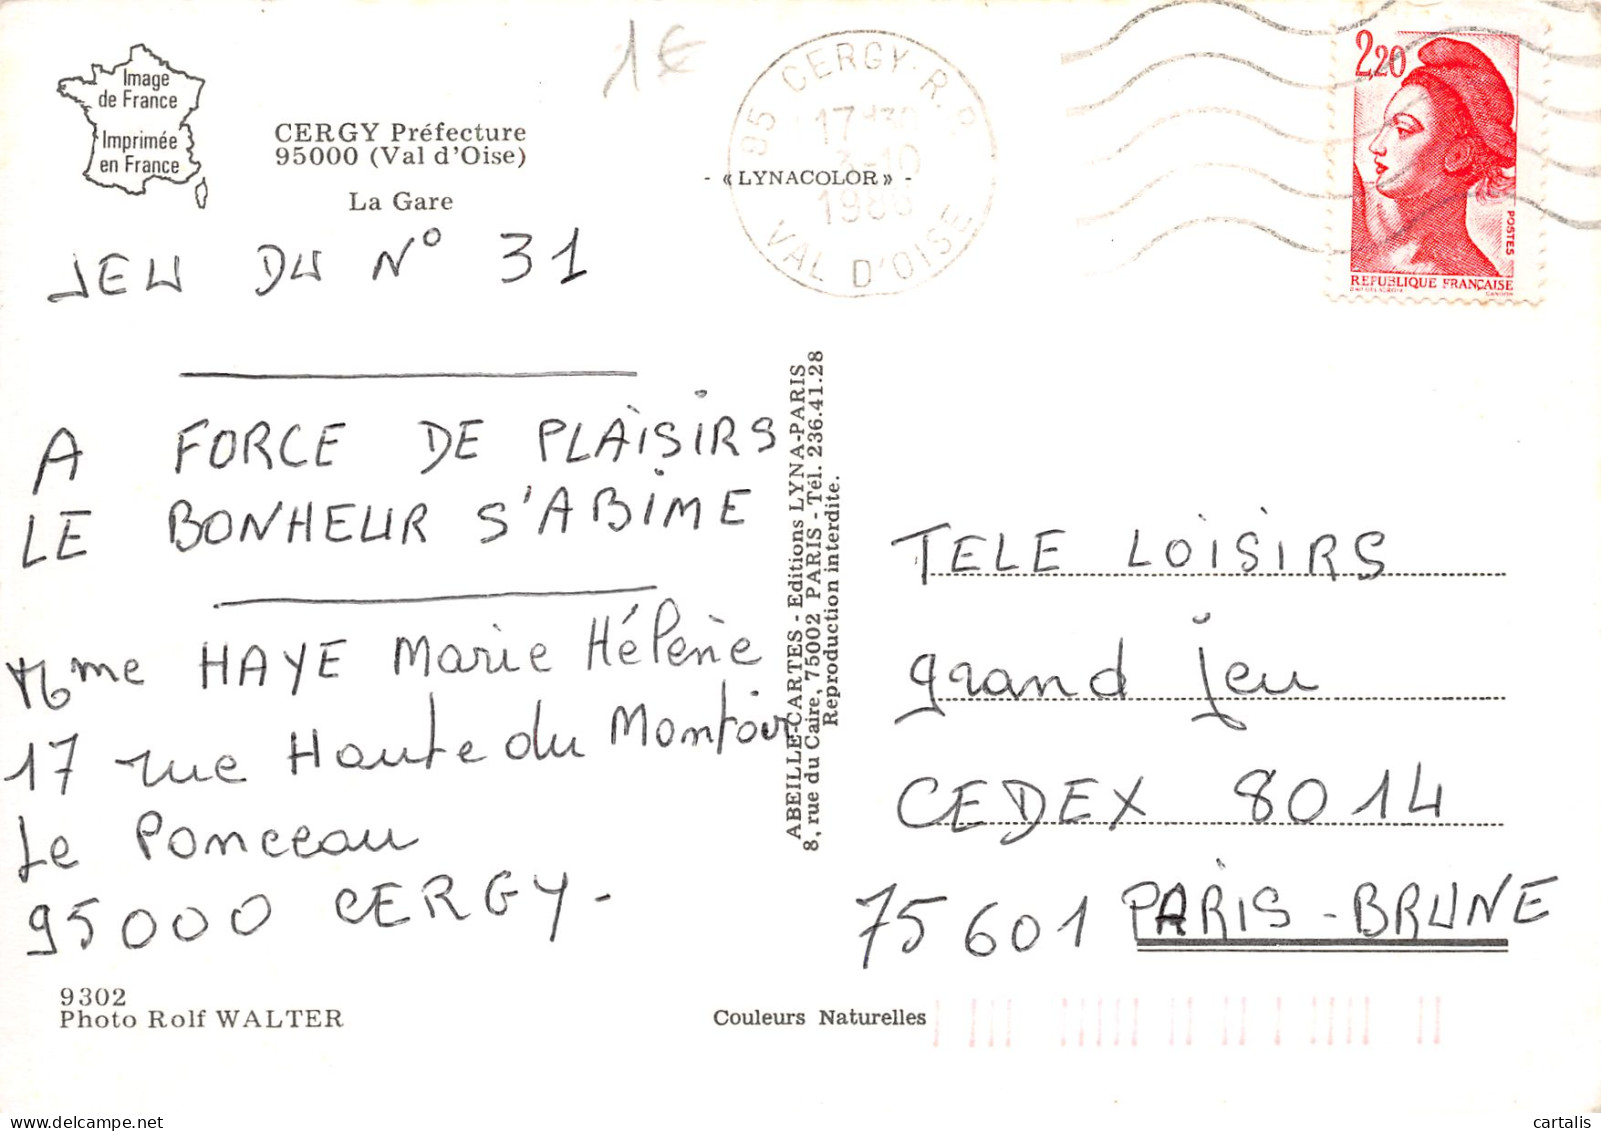 Image
de France
Imprimée
en France
CERGY Préfecture
95000 (Val d'Oise)
La Gare
1€
95 CERGY R.P.
17H30
3-10
1986
VAL D'OISE
- « LYNACOLOR » -
2,20
POSTES
REPUBLIQUE FRANÇAISE
JEU DU N° 31
A FORCE DE PLAISIRS
LE BONHEUR S'ABIME
Mme HAYE Marie Hélène
17 rue Haute du Montoir
Le Ponceau
95000 CERGY -
ABEILLE-CARTES - Editions LYNA-PARIS
8, rue du Caire, 75002 PARIS - Tél. 236.41.28
Reproduction interdite.
TELE LOISIRS
grand jeu
CEDEX 8014
75601 PARIS - BRUNE
9302
Photo Rolf WALTER
Couleurs Naturelles
cartalis
delcampe.net